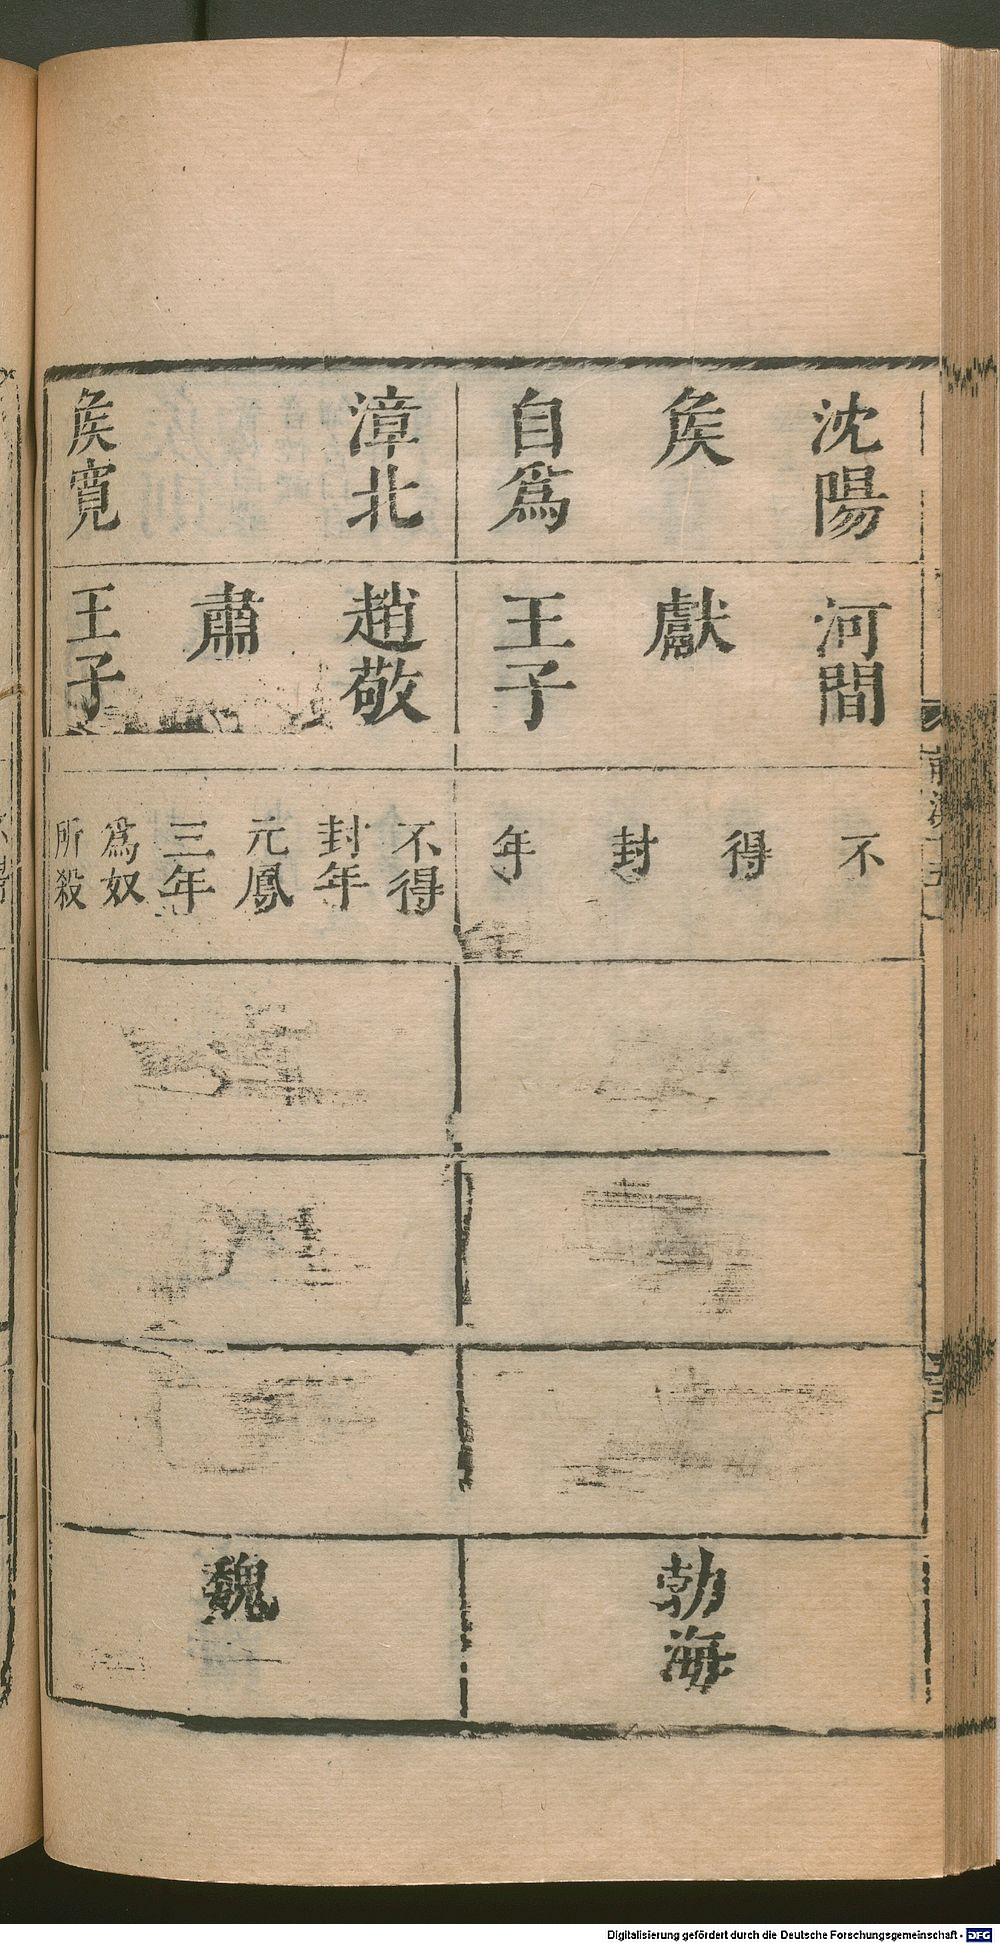 沈陽
侯
自爲
河間
獻
王子
不
得
封
年
勃海
漳北
侯寛
趙敬
肅
王子
不得
封年
元鳳
三年
爲奴
所殺
魏
Digitalisierung gefördert durch die Deutsche Forschungsgemeinschaft - DFG